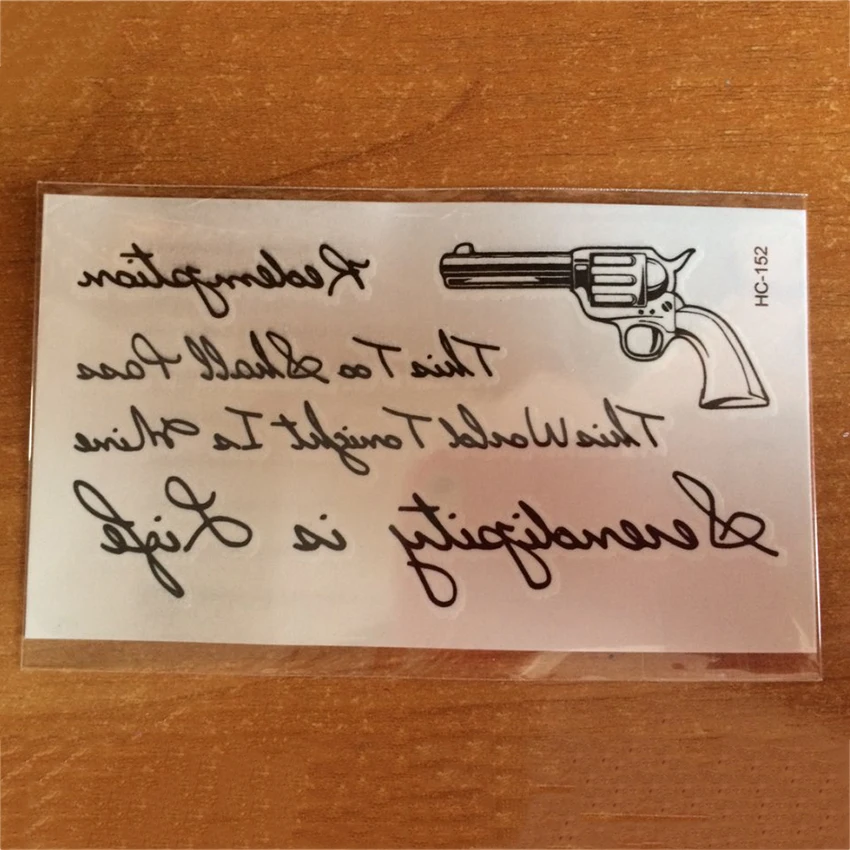 Redemption
HC-152
This Too Shall Pass
This World Tonight Is Mine
Serendipity is Life